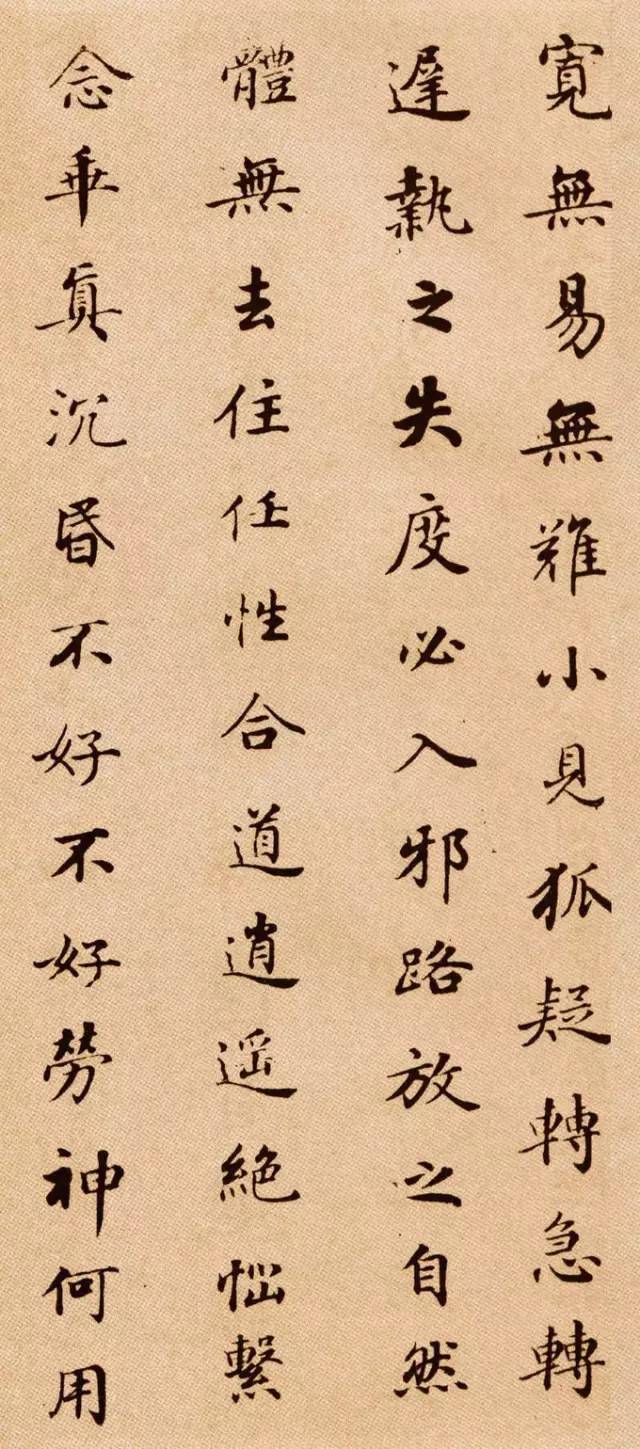 寬無易無難小見狐疑轉急轉
遲執之失度必入邪路放之自然
體無去住任性合道逍遥絶惱繫
念乖真沉昏不好不好勞神何用